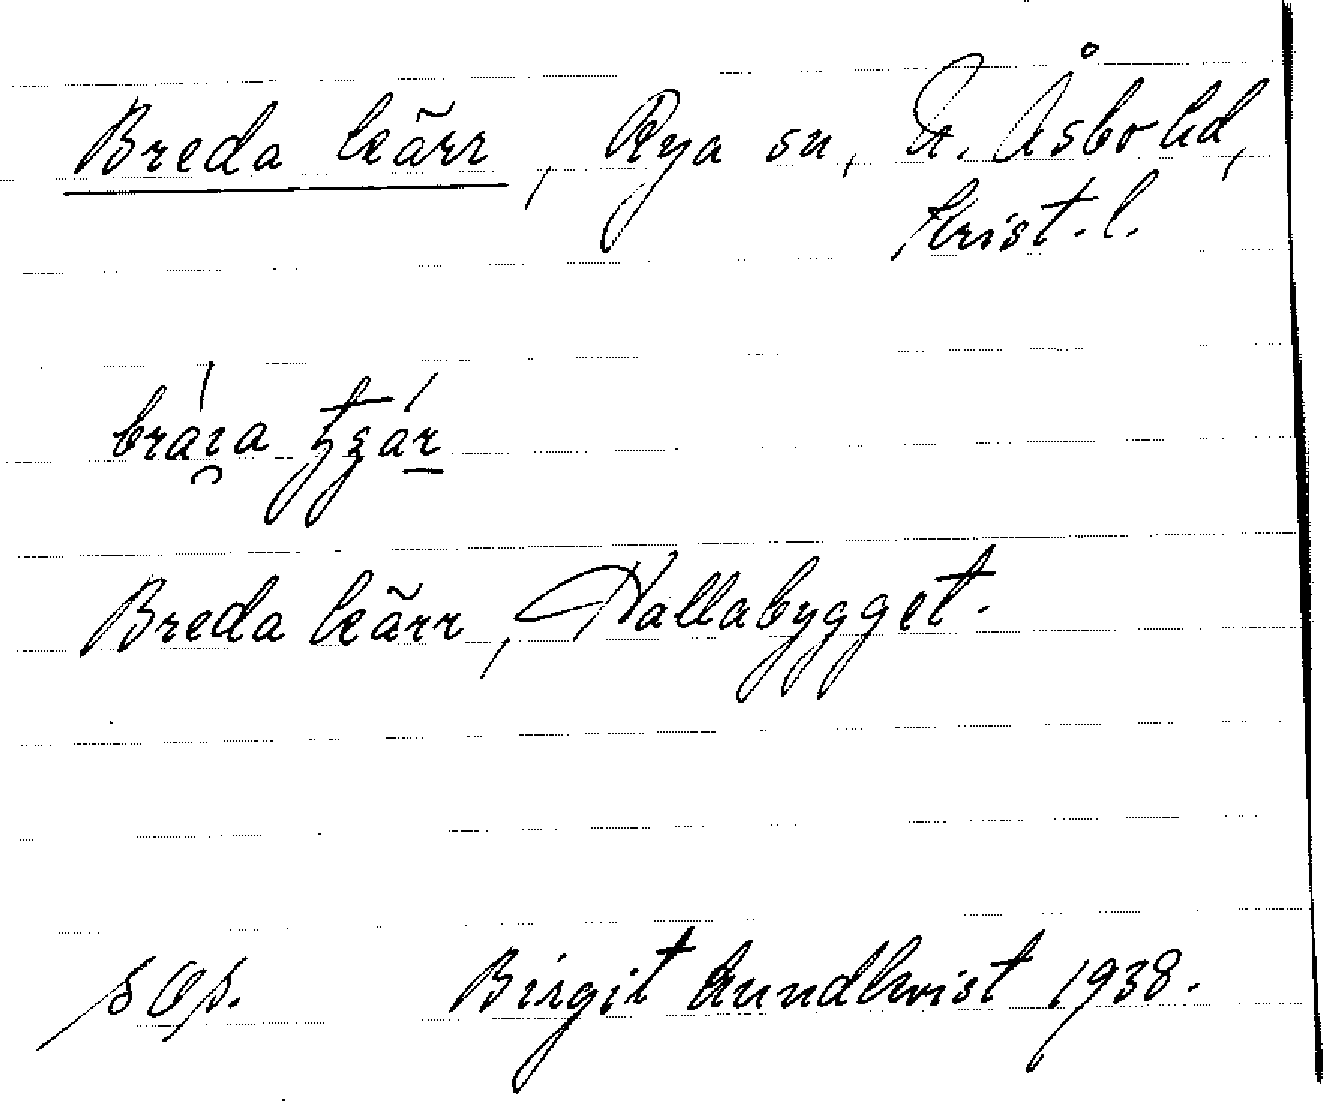 Breda kärr, Rya sn, N. Åsbo hd,
Krist. l.
Breda kärr, Hallabygget.
Birgit Lundkvist 1938.